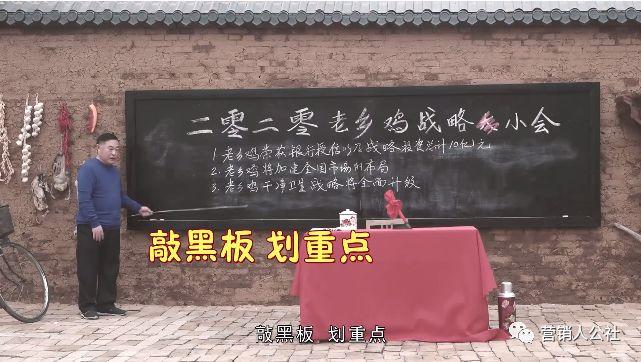 二零二零老乡鸡战略小会
1. 老乡鸡荣获银行授信以及战略投资总计10亿元
2. 老乡鸡将加速全国市场的布局
3. 老乡鸡干净卫生战略将全面升级
敲黑板 划重点
敲黑板 划重点
营销人公社